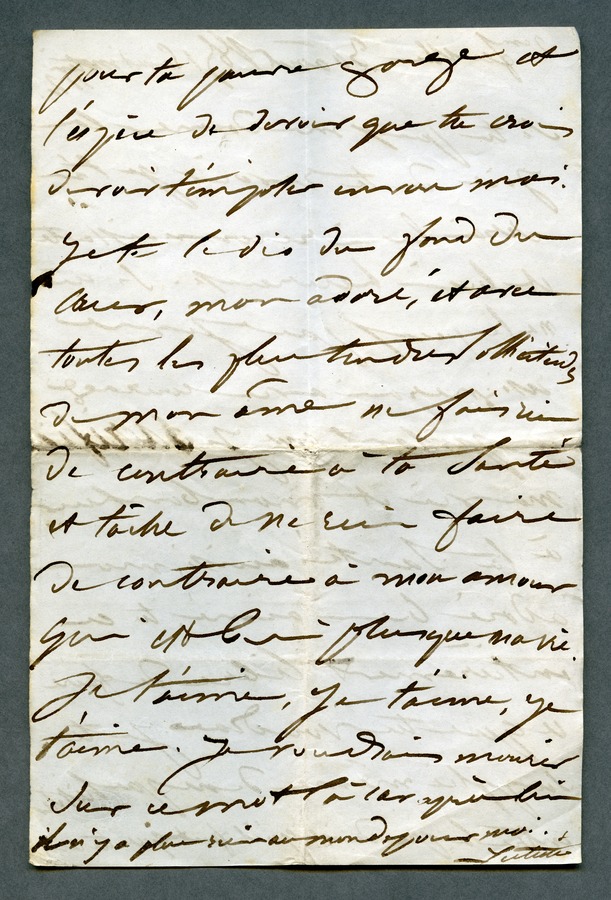 pour ta pauvre gorge et
l'espèce de devoir que tu crois
devoir remplir envers moi.
Je te le dis du fond du
cœur, mon adoré, et avec
toutes les plus tendres sollicitudes
de mon âme ne fais rien
de contraire à ta santé
et tâche de ne rien faire
de contraire à mon amour
qui est bien plus que ma vie.
Je t'aime, je t'aime, je
t'aime. Je voudrais mourir
sur ce mot là car après lui
il n'y a plus rien au monde pour moi.
Juliette